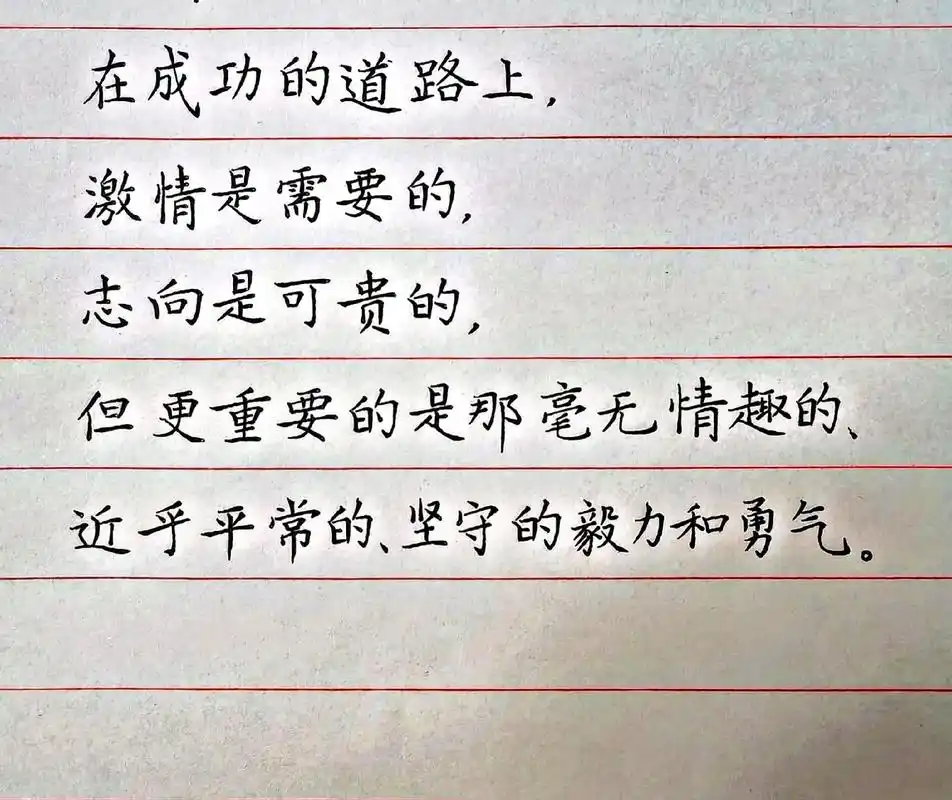 在成功的道路上，
激情是需要的，
志向是可贵的，
但更重要的是那毫无情趣的、
近乎平常的、坚守的毅力和勇气。